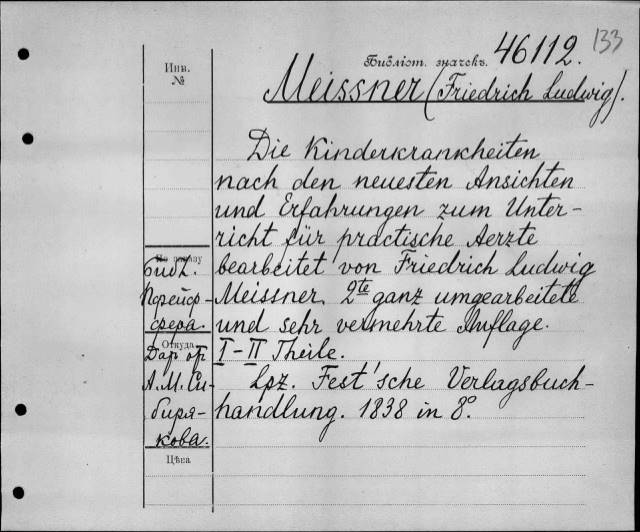 133
Библіот. значекъ. 46112.
Инв.
№
Meissner (Friedrich Ludwig).
Die Kinderkrankheiten
nach den neuesten Ansichten
und Erfahrungen zum Unter-
richt für practische Aerzte
bearbeitet von Friedrich Ludwig
Meissner. 2te ganz umgearbeitete
und sehr vermehrte Auflage.
I-II Theile.
Lpz. Fest'sche Verlagsbuch-
handlung. 1838 in 8º.
По заказу
Библ.
Порейф-
сфера.
Откуда
Дар от
А. М. Си-
биря-
кова.
Цѣна